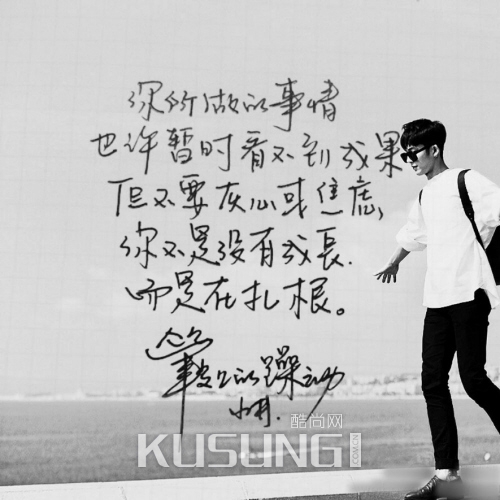 你所做的事情
也许暂时看不到成果
但不要灰心或焦虑,
你不是没有成长.
而是在扎根。
的躁动
酷尚网
KUSUNG
.COM.CN